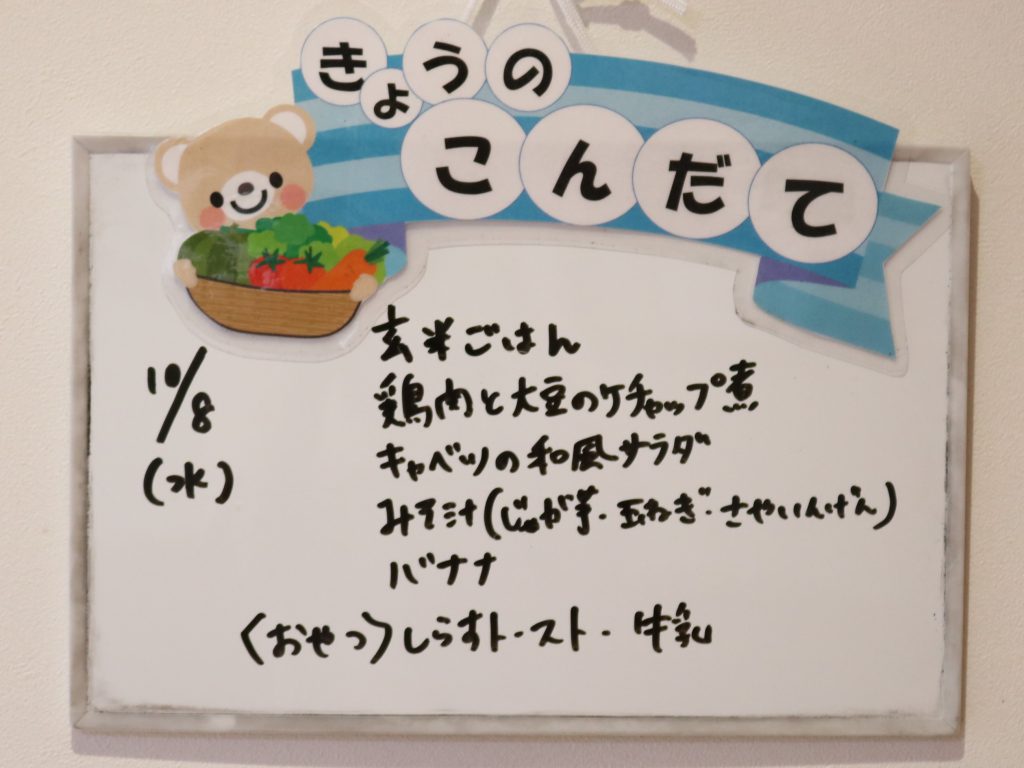 きょうの
こんだて
10/8
(水)
玄米ごはん
鶏肉と大豆のケチャップ煮
キャベツの和風サラダ
みそ汁(じゃが芋・玉ねぎ・さやいんげん)
バナナ
〈おやつ〉しらすトースト・牛乳